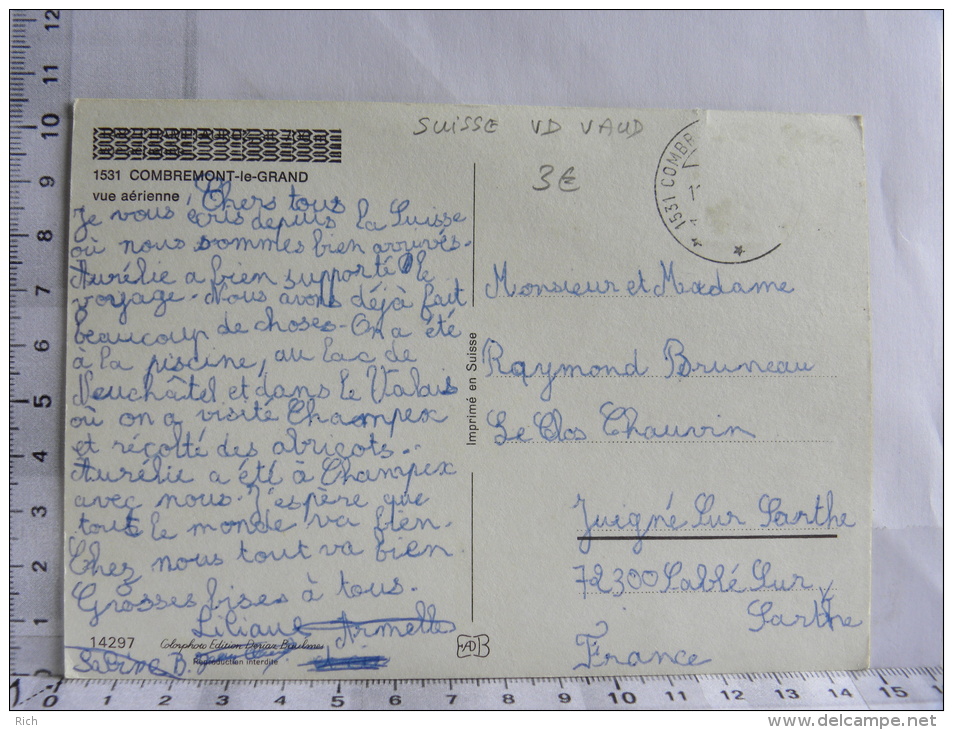 SUISSE VD VAUD
3€
1531 COMBR
1531 COMBREMONT-le-GRAND
vue aérienne
Chers tous
Je vous écris depuis la Suisse
où nous sommes bien arrivés.
Aurélie a bien supporté le
voyage. Nous avons déjà fait
beaucoup de choses. On a été
à la piscine, au lac de
Neuchâtel et dans le Valais
où on a visité Champex
et récolté des abricots.
Aurélie a été à Champex
avec nous. J'espère que
tout le monde va bien.
Chez nous tout va bien.
Grosses bises à tous.
Liliane Armelle
Sabine B.
14297
Colorphoto Edition Deriaz Baulmes
Reproduction interdite
Imprimé en Suisse
Monsieur et Madame
Raymond Bruneau
Le Clos Chauvin
Juigné Sur Sarthe
72300 Sablé Sur
Sarthe
France
0 1 2 3 4 5 6 7 8 9 10 11 12
1 2 3 4 5 6 7 8 9 10 11 12 13 14 15
Rich
delcampe.net